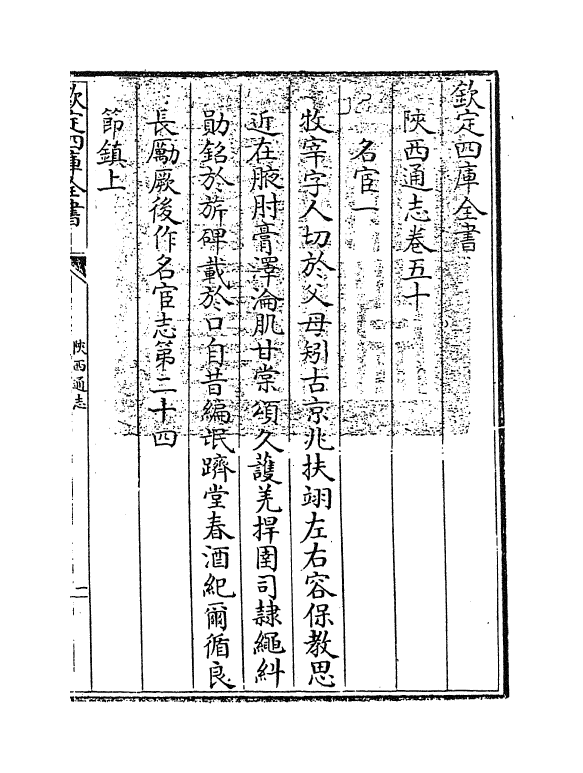 欽定四庫全書
陜西通志卷五十
名宦一
牧宰字人切於父母矧古京兆扶翊左右容保教思
近在腋肘膏澤淪肌甘棠頌久護羌捍圉司隸繩糾
勛銘於旂碑載於口自昔編氓躋堂春酒紀爾循良
長勵厥後作名宦志第二十四
節鎮上
欽定四庫全書
陜西通志
一